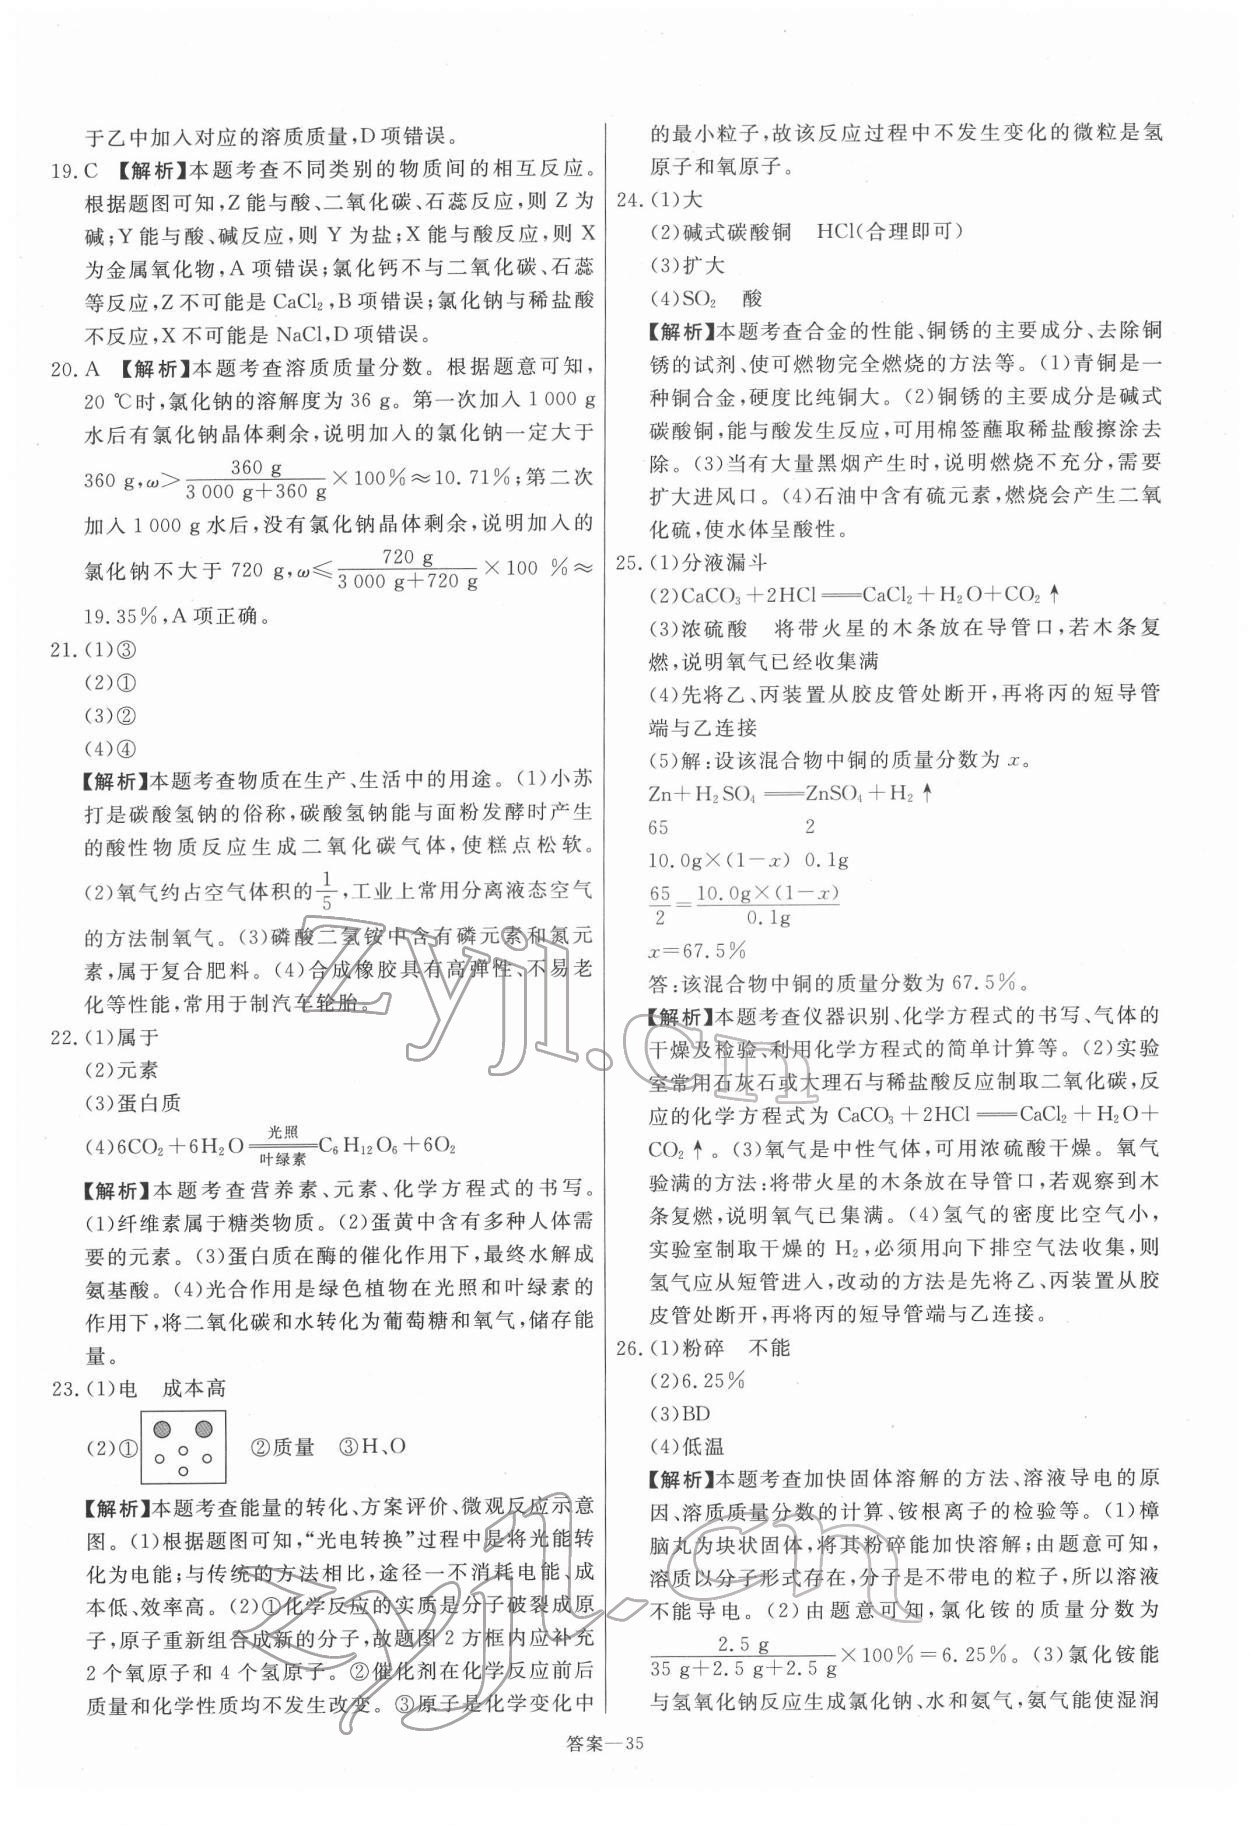 于乙中加入对应的溶质质量,D项错误。
19. C 【解析】本题考查不同类别的物质间的相互反应。
根据题图可知,Z能与酸、二氧化碳、石蕊反应,则 Z 为
碱;Y 能与酸、碱反应,则 Y 为盐;X 能与酸反应,则 X
为金属氧化物,A 项错误;氯化钙不与二氧化碳、石蕊
等反应,Z不可能是 CaCl₂,B项错误;氯化钠与稀盐酸
不反应,X不可能是 NaCl,D项错误。
20. A 【解析】本题考查溶质质量分数。根据题意可知,
20 ℃时,氯化钠的溶解度为 36 g。第一次加入 1 000 g
水后有氯化钠晶体剩余,说明加入的氯化钠一定大于
360 g,ω>360 g/(3 000 g+360 g)×100%≈10.71%;第二次
加入 1 000 g 水后,没有氯化钠晶体剩余,说明加入的
氯化钠不大于 720 g,ω≤720 g/(3 000 g+720 g)×100 %≈
19.35%,A 项正确。
21. (1)③
(2)①
(3)②
(4)④
【解析】本题考查物质在生产、生活中的用途。(1)小苏
打是碳酸氢钠的俗称,碳酸氢钠能与面粉发酵时产生
的酸性物质反应生成二氧化碳气体,使糕点松软。
(2)氧气约占空气体积的1/5,工业上常用分离液态空气
的方法制氧气。(3)磷酸二氢铵中含有磷元素和氮元
素,属于复合肥料。(4)合成橡胶具有高弹性、不易老
化等性能,常用于制汽车轮胎。
22. (1)属于
(2)元素
(3)蛋白质
(4)6CO₂+6H₂O ═光照/叶绿素═ C₆H₁₂O₆+6O₂
【解析】本题考查营养素、元素、化学方程式的书写。
(1)纤维素属于糖类物质。(2)蛋黄中含有多种人体需
要的元素。(3)蛋白质在酶的催化作用下,最终水解成
氨基酸。(4)光合作用是绿色植物在光照和叶绿素的
作用下,将二氧化碳和水转化为葡萄糖和氧气,储存能
量。
23. (1)电 成本高
(2)① ②质量 ③H、O
【解析】本题考查能量的转化、方案评价、微观反应示意
图。(1)根据题图可知,“光电转换”过程中是将光能转
化为电能;与传统的方法相比,途径一不消耗电能、成
本低、效率高。(2)①化学反应的实质是分子破裂成原
子,原子重新组合成新的分子,故题图 2 方框内应补充
2 个氧原子和 4 个氢原子。②催化剂在化学反应前后
质量和化学性质均不发生改变。③原子是化学变化中
的最小粒子,故该反应过程中不发生变化的微粒是氢
原子和氧原子。
24. (1)大
(2)碱式碳酸铜 HCl(合理即可)
(3)扩大
(4)SO₂ 酸
【解析】本题考查合金的性能、铜锈的主要成分、去除铜
锈的试剂、使可燃物完全燃烧的方法等。(1)青铜是一
种铜合金,硬度比纯铜大。(2)铜锈的主要成分是碱式
碳酸铜,能与酸发生反应,可用棉签蘸取稀盐酸擦涂去
除。(3)当有大量黑烟产生时,说明燃烧不充分,需要
扩大进风口。(4)石油中含有硫元素,燃烧会产生二氧
化硫,使水体呈酸性。
25. (1)分液漏斗
(2)CaCO₃+2HCl══CaCl₂+H₂O+CO₂↑
(3)浓硫酸 将带火星的木条放在导管口,若木条复
燃,说明氧气已经收集满
(4)先将乙、丙装置从胶皮管处断开,再将丙的短导管
端与乙连接
(5)解:设该混合物中铜的质量分数为 x。
Zn+H₂SO₄══ZnSO₄+H₂↑
65 2
10.0g×(1-x) 0.1g
65/2=10.0g×(1-x)/0.1g
x=67.5%
答:该混合物中铜的质量分数为 67.5%。
【解析】本题考查仪器识别、化学方程式的书写、气体的
干燥及检验、利用化学方程式的简单计算等。(2)实验
室常用石灰石或大理石与稀盐酸反应制取二氧化碳,反
应的化学方程式为 CaCO₃+2HCl══CaCl₂+H₂O+
CO₂↑。(3)氧气是中性气体,可用浓硫酸干燥。氧气
验满的方法:将带火星的木条放在导管口,若观察到木
条复燃,说明氧气已集满。(4)氢气的密度比空气小,
实验室制取干燥的 H₂,必须用向下排空气法收集,则
氢气应从短管进入,改动的方法是先将乙、丙装置从胶
皮管处断开,再将丙的短导管端与乙连接。
26. (1)粉碎 不能
(2)6.25%
(3)BD
(4)低温
【解析】本题考查加快固体溶解的方法、溶液导电的原
因、溶质质量分数的计算、铵根离子的检验等。(1)樟
脑丸为块状固体,将其粉碎能加快溶解;由题意可知,
溶质以分子形式存在,分子是不带电的粒子,所以溶液
不能导电。(2)由题意可知,氯化铵的质量分数为
2.5 g/(35 g+2.5 g+2.5 g)×100%=6.25%。(3)氯化铵能
与氢氧化钠反应生成氯化钠、水和氨气,氨气能使湿润
答案—35
zyjl.cn
zyjl.cn